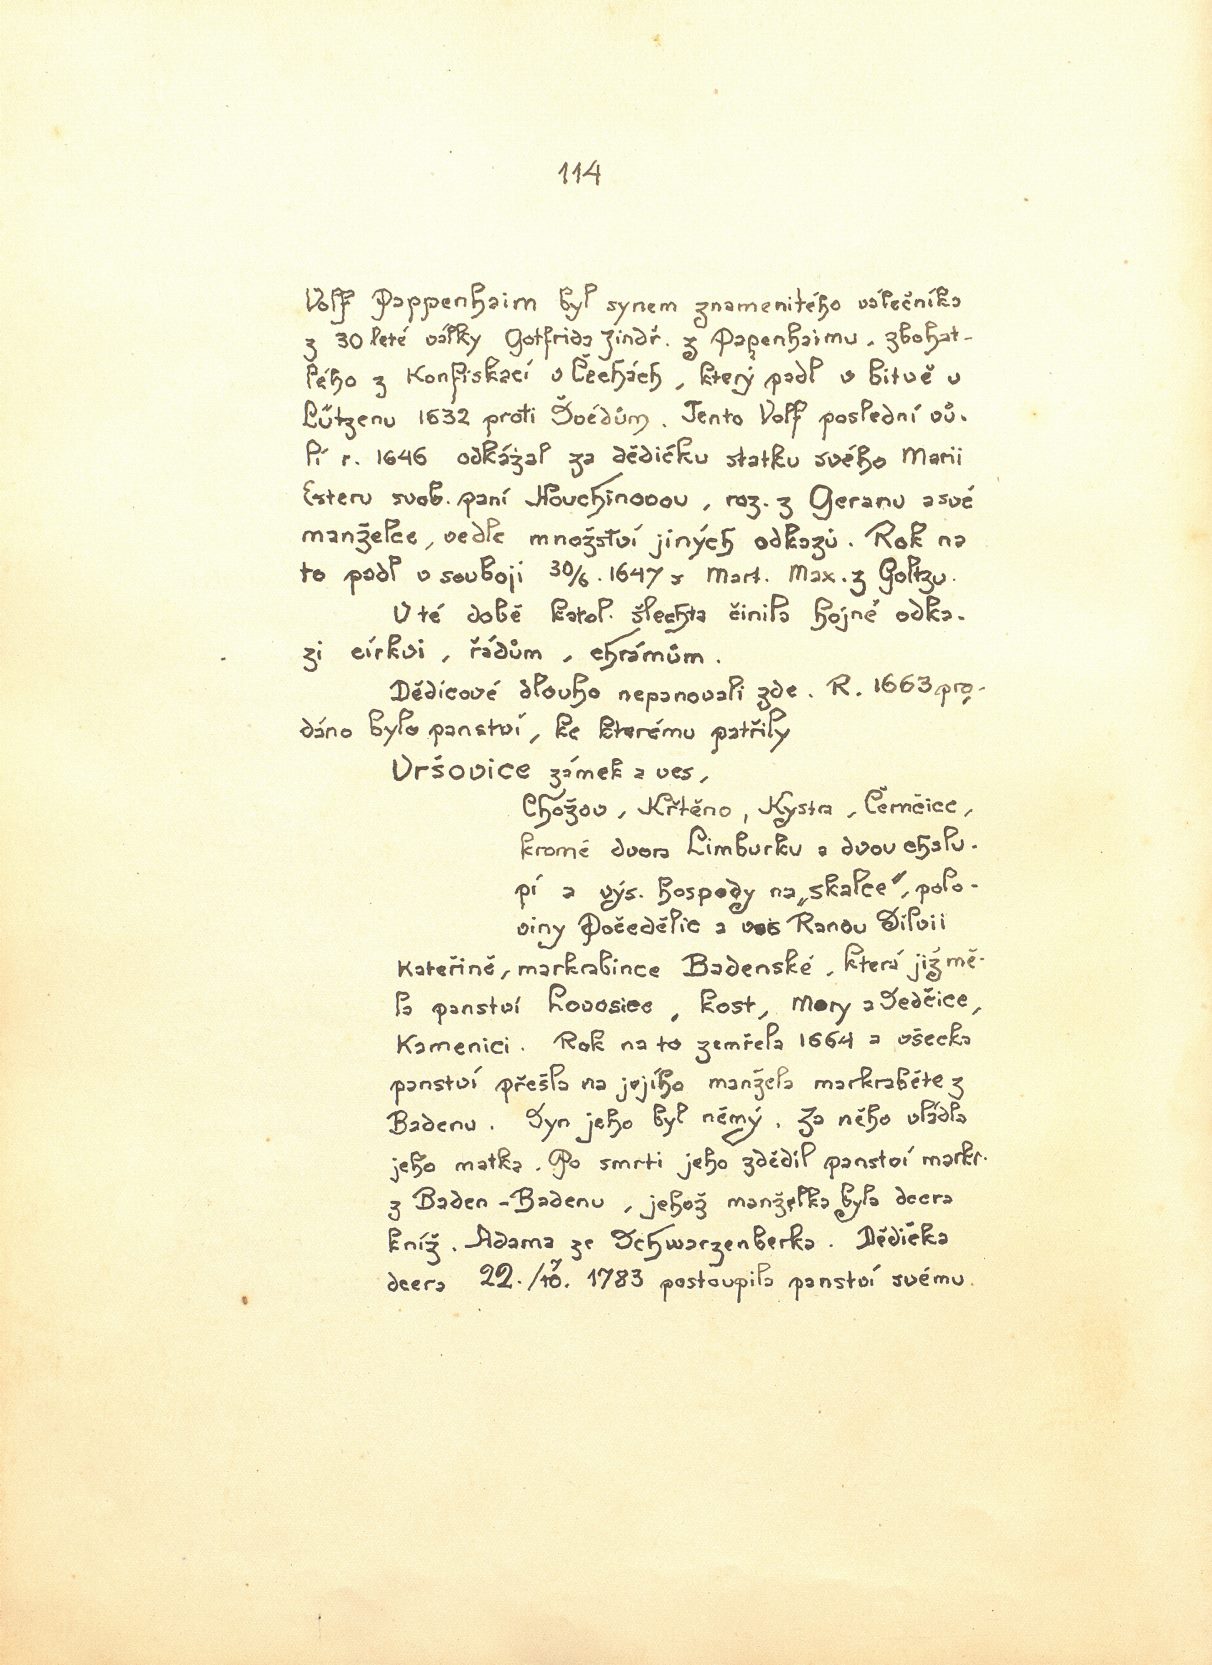 114
Volf Pappenhaim byl synem znamenitého válečníka
z 30 leté války Gotfrida Jindř. z Papenhaimu, zbohat-
lého z Konfiskací v Čechách, který padl v bitvě u
Lützenu 1632 proti Švédům. Tento Volf poslední vů-
lí r. 1646 odkázal za dědičku statku svého Marii
Esteru svob. paní Houchinovou, roz. z Geranu a své
manželce, vedle množství jiných odkazů. Rok na
to padl v souboji 30/6. 1647 s Mart. Max. z Goltzu.
V té době katol. šlechta činila hojné odka-
zi církvi, řádům, chrámům.
Dědicové dlouho nepanovali zde. R. 1663 pro-
dáno bylo panství, ke kterému patřily
Vršovice zámek a ves,
Chožov, Křtěno, Kystra, Černčice,
kromě dvora Limburku a dvou chalu-
pí a výs. hospody na „skalce", polo-
viny Počedělic a ves Ranou Silvii
Kateřině, markrabince Badenské, která již mě-
la panství Lovosice, kost, Mory a Sedčice,
Kamenici. Rok na to zemřela 1664 a všecka
panství přešla na jejího manžela markraběte z
Badenu. Syn jeho byl němý. Za něho vládla
jeho matka. Po smrti jeho zdědil panství markr.
z Baden-Badenu, jehož manželka byla dcera
kníž. Adama ze Schwarzenberka. Dědička
dcera 22./10. 1783 postoupila panství svému